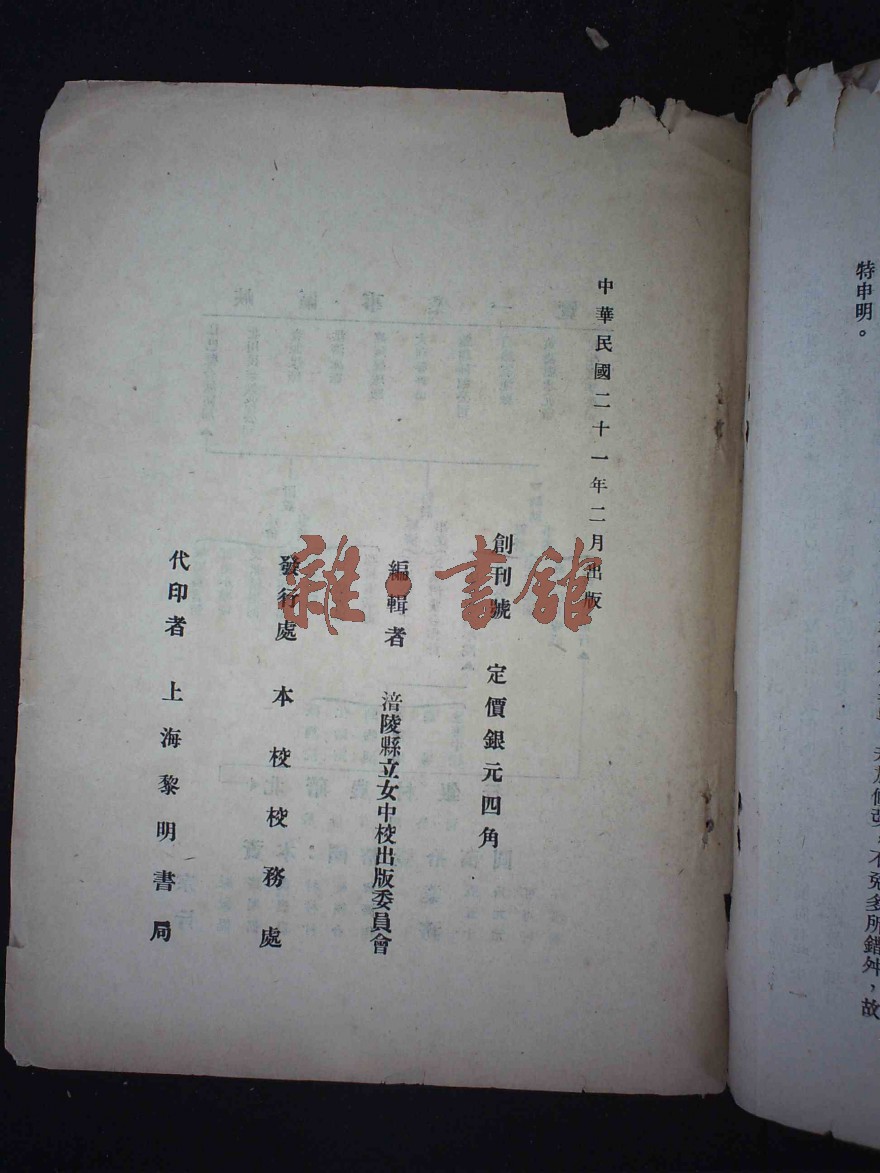 特申明。
不免多所錯舛，故
中華民國二十一年二月出版
創刊號 定價銀元四角
編輯者 涪陵縣立女中校出版委員會
發行處 本校校務處
代印者 上海黎明書局
雜·書館